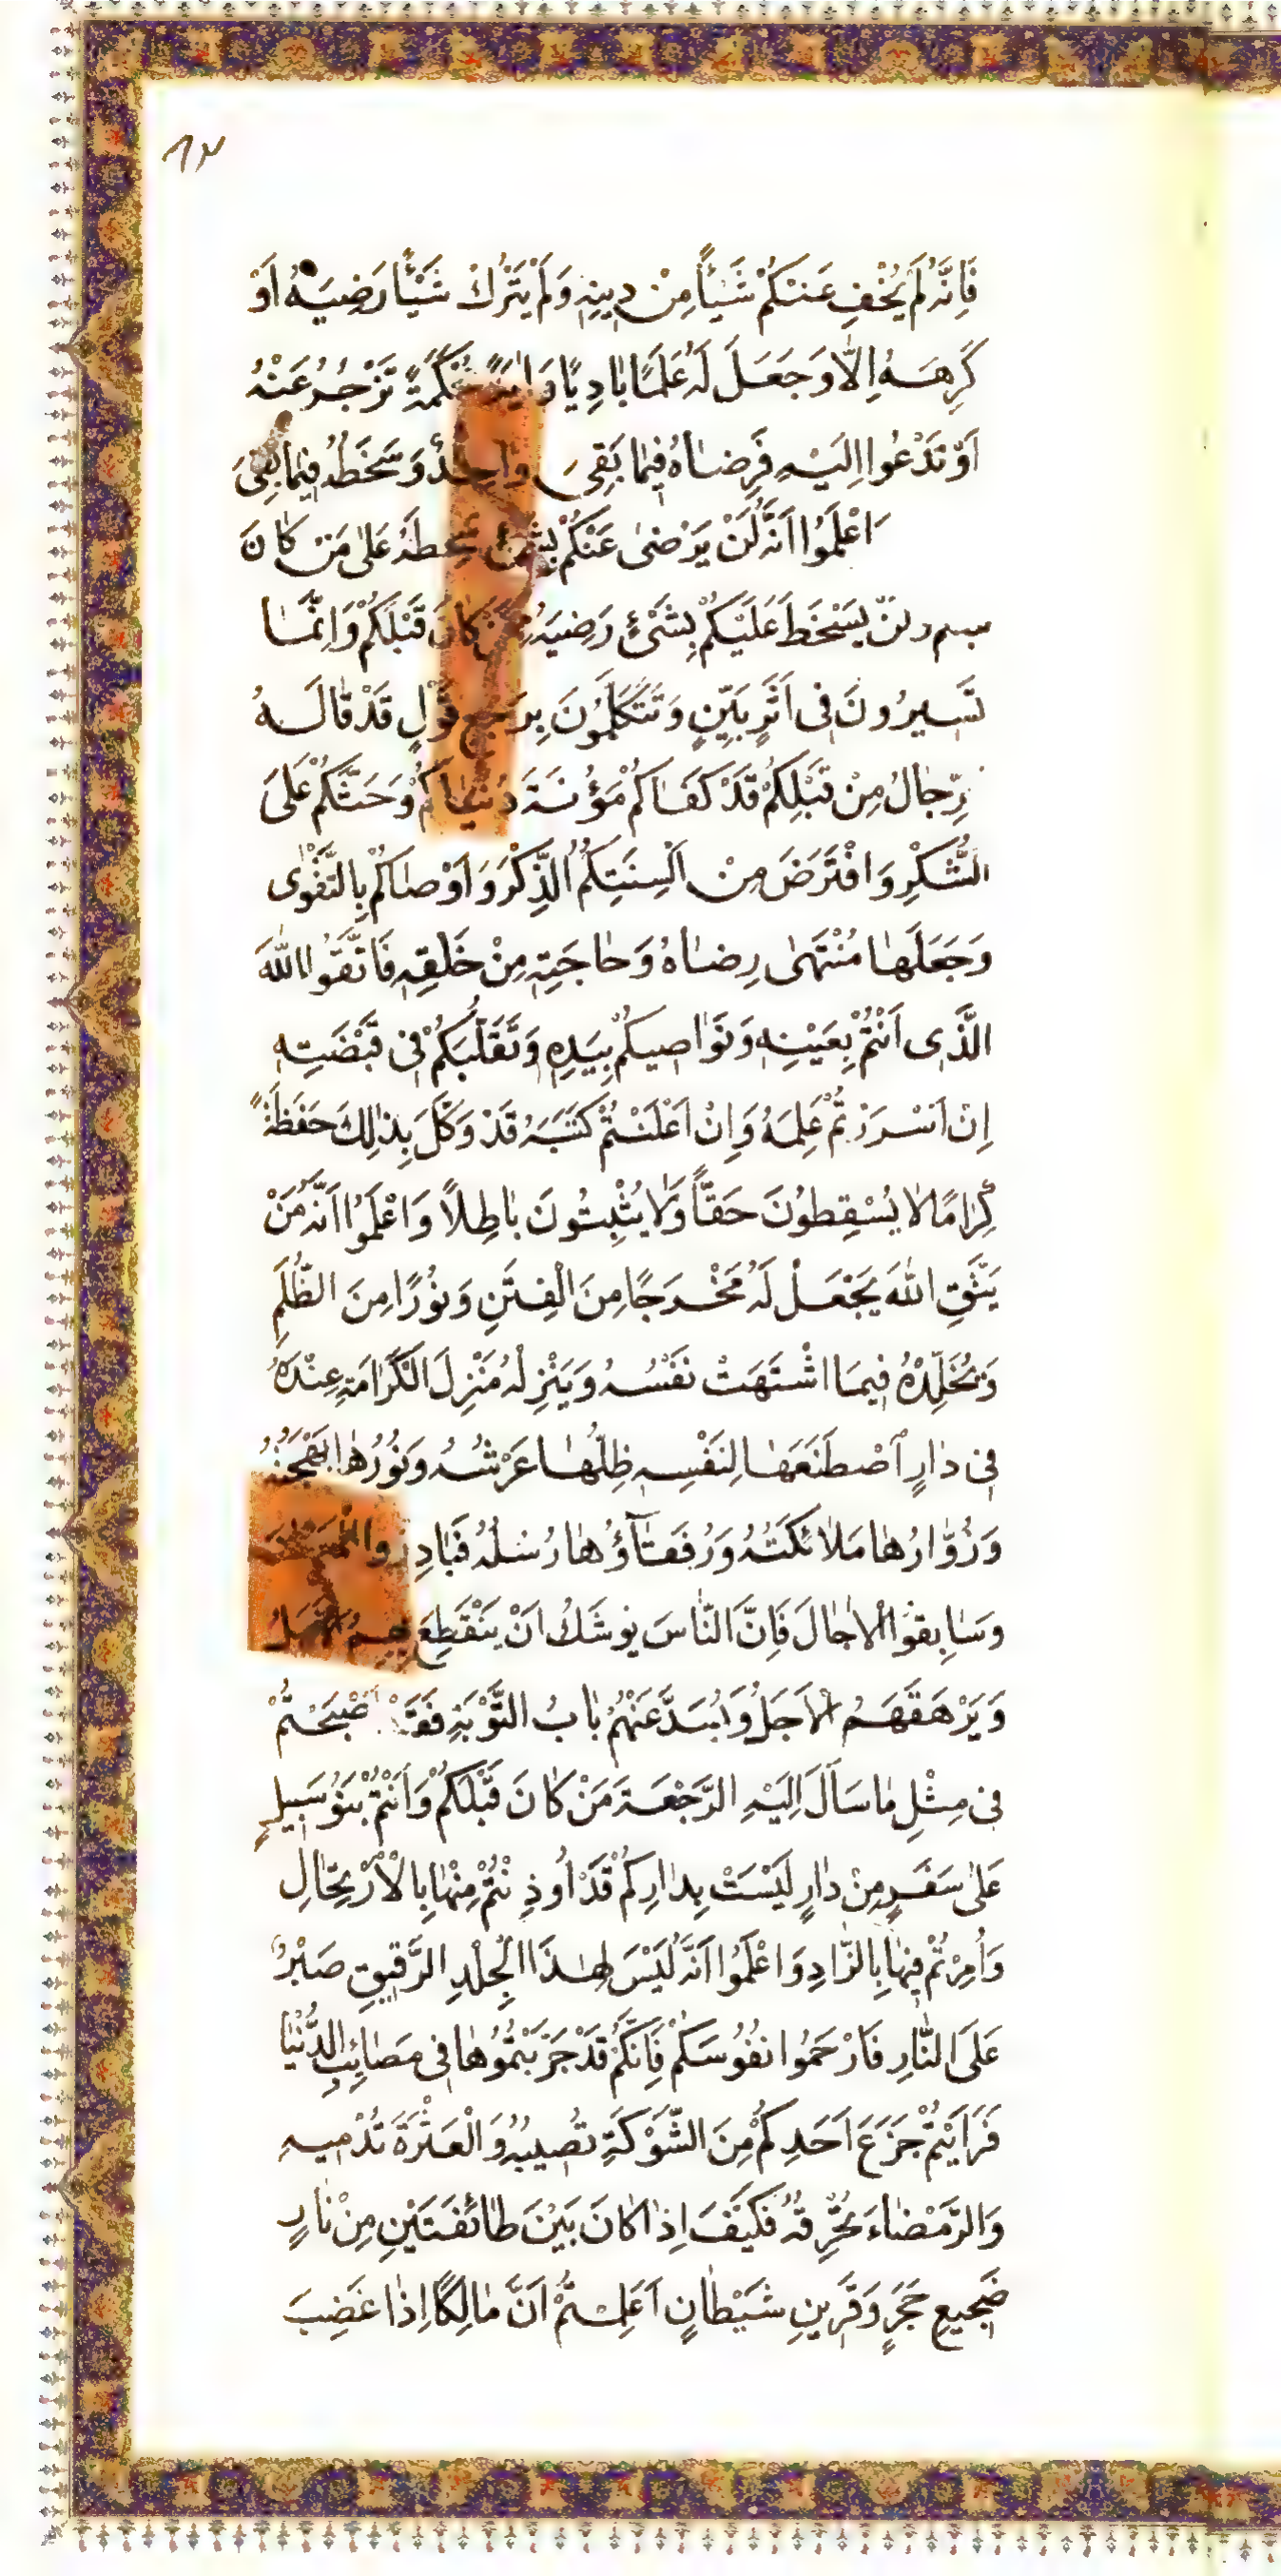 ٨٢
فَاِنَّهُ لَمْ يُخْفِ عَنْكُمْ شَيْئًا مِنْ دِينِهِ وَلَمْ يَتْرُكْ شَيْئًا رَضِيَهُ اَوْ
كَرِهَهُ اِلَّا وَجَعَلَ لَهُ عَلَمًا بَادِيًا وَاٰيَةً مُحْكَمَةً تَزْجُرُ عَنْهُ
اَوْ تَدْعُوا اِلَيْهِ فَرِضَاهُ فِيمَا بَقِيَ وَاحِدٌ وَسَخَطُهُ فِيمَا بَقِيَ
اعْلَمُوا اَنَّهُ لَنْ يَرْضىٰ عَنْكُمْ بِشَيْءٍ سَخِطَهُ عَلىٰ مَنْ كَانَ
يَسْخَطَ عَلَيْكُمْ بِشَيْءٍ رَضِيَهُ مِمَّنْ كَانَ قَبْلَكُمْ وَاِنَّمَا
تَسِيرُونَ فِي اَثَرٍ بَيِّنٍ وَتَتَكَلَّمُونَ بِرَجْعِ قَوْلٍ قَدْ قَالَهُ
رِجَالٌ مِنْ قَبْلِكُمْ قَدْ كَفَاكُمْ مَؤُنَةَ دُنْيَاكُمْ وَحَثَّكُمْ عَلَى
الشُّكْرِ وَافْتَرَضَ مِنْ اَلْسِنَتِكُمُ الذِّكْرَ وَاَوْصَاكُمْ بِالتَّقْوٰى
وَجَعَلَهَا مُنْتَهىٰ رِضَاهُ وَحَاجَتِهِ مِنْ خَلْقِهِ فَاتَّقُوا اللهَ
الَّذِي اَنْتُمْ بِعَيْنِهِ وَنَوَاصِيكُمْ بِيَدِهِ وَتَقَلُّبُكُمْ فِي قَبْضَتِهِ
اِنْ اَسْرَرْتُمْ عَلِمَهُ وَاِنْ اَعْلَنْتُمْ كَتَبَهُ قَدْ وَكَّلَ بِذٰلِكَ حَفَظَةً
كِرَامًا لَا يُسْقِطُونَ حَقًّا وَلَا يُثْبِتُونَ بَاطِلًا وَاعْلَمُوا اَنَّهُ مَنْ
يَتَّقِ اللهَ يَجْعَلْ لَهُ مَخْرَجًا مِنَ الْفِتَنِ وَنُورًا مِنَ الظُّلَمِ
وَيُخَلِّدْهُ فِيمَا اشْتَهَتْ نَفْسُهُ وَيَنْزِلْهُ مَنْزِلَ الْكَرَامَةِ عِنْدَهُ
فِي دَارٍ اصْطَنَعَهَا لِنَفْسِهِ ظِلُّهَا عَرْشُهُ وَنُورُهَا بَهْجَتُهُ
وَزُوَّارُهَا مَلَائِكَتُهُ وَرُفَقَاؤُهَا رُسُلُهُ فَبَادِرُوا
وَسَابِقُوا الْاٰجَالَ فَاِنَّ النَّاسَ يُوشَكُ اَنْ يَنْقَطِعَ بِهِمُ الْاَمَلُ
وَيَرْهَقَهُمُ الْاَجَلُ وَيُسَدَّ عَنْهُمْ بَابُ التَّوْبَةِ فَقَدْ اَصْبَحْتُمْ
فِي مِثْلِ مَا سَاَلَ اِلَيْهِ الرَّجْعَةَ مَنْ كَانَ قَبْلَكُمْ وَاَنْتُمْ بَنُو سَبِيلٍ
عَلىٰ سَفَرٍ مِنْ دَارٍ لَيْسَتْ بِدَارِكُمْ قَدْ اُوذِنْتُمْ مِنْهَا بِالْاِرْتِحَالِ
وَاُمِرْتُمْ فِيهَا بِالزَّادِ وَاعْلَمُوا اَنَّهُ لَيْسَ لِهٰذَا الْجِلْدِ الرَّقِيقِ صَبْرٌ
عَلَى النَّارِ فَارْحَمُوا نُفُوسَكُمْ فَاِنَّكُمْ قَدْ جَرَّبْتُمُوهَا فِي مَصَائِبِ الدُّنْيَا
فَرَاَيْتُمْ جَزَعَ اَحَدِكُمْ مِنَ الشَّوْكَةِ تُصِيبُهُ وَالْعَثْرَةَ تُدْمِيهِ
وَالرَّمْضَاءَ تُحْرِقُهُ فَكَيْفَ اِذَا كَانَ بَيْنَ طَائِفَتَيْنِ مِنْ نَارٍ
ضَجِيعِ حَجَرٍ وَقَرِينِ شَيْطَانٍ اَعَلِمْتُمْ اَنَّ مَالِكًا اِذَا غَضِبَ